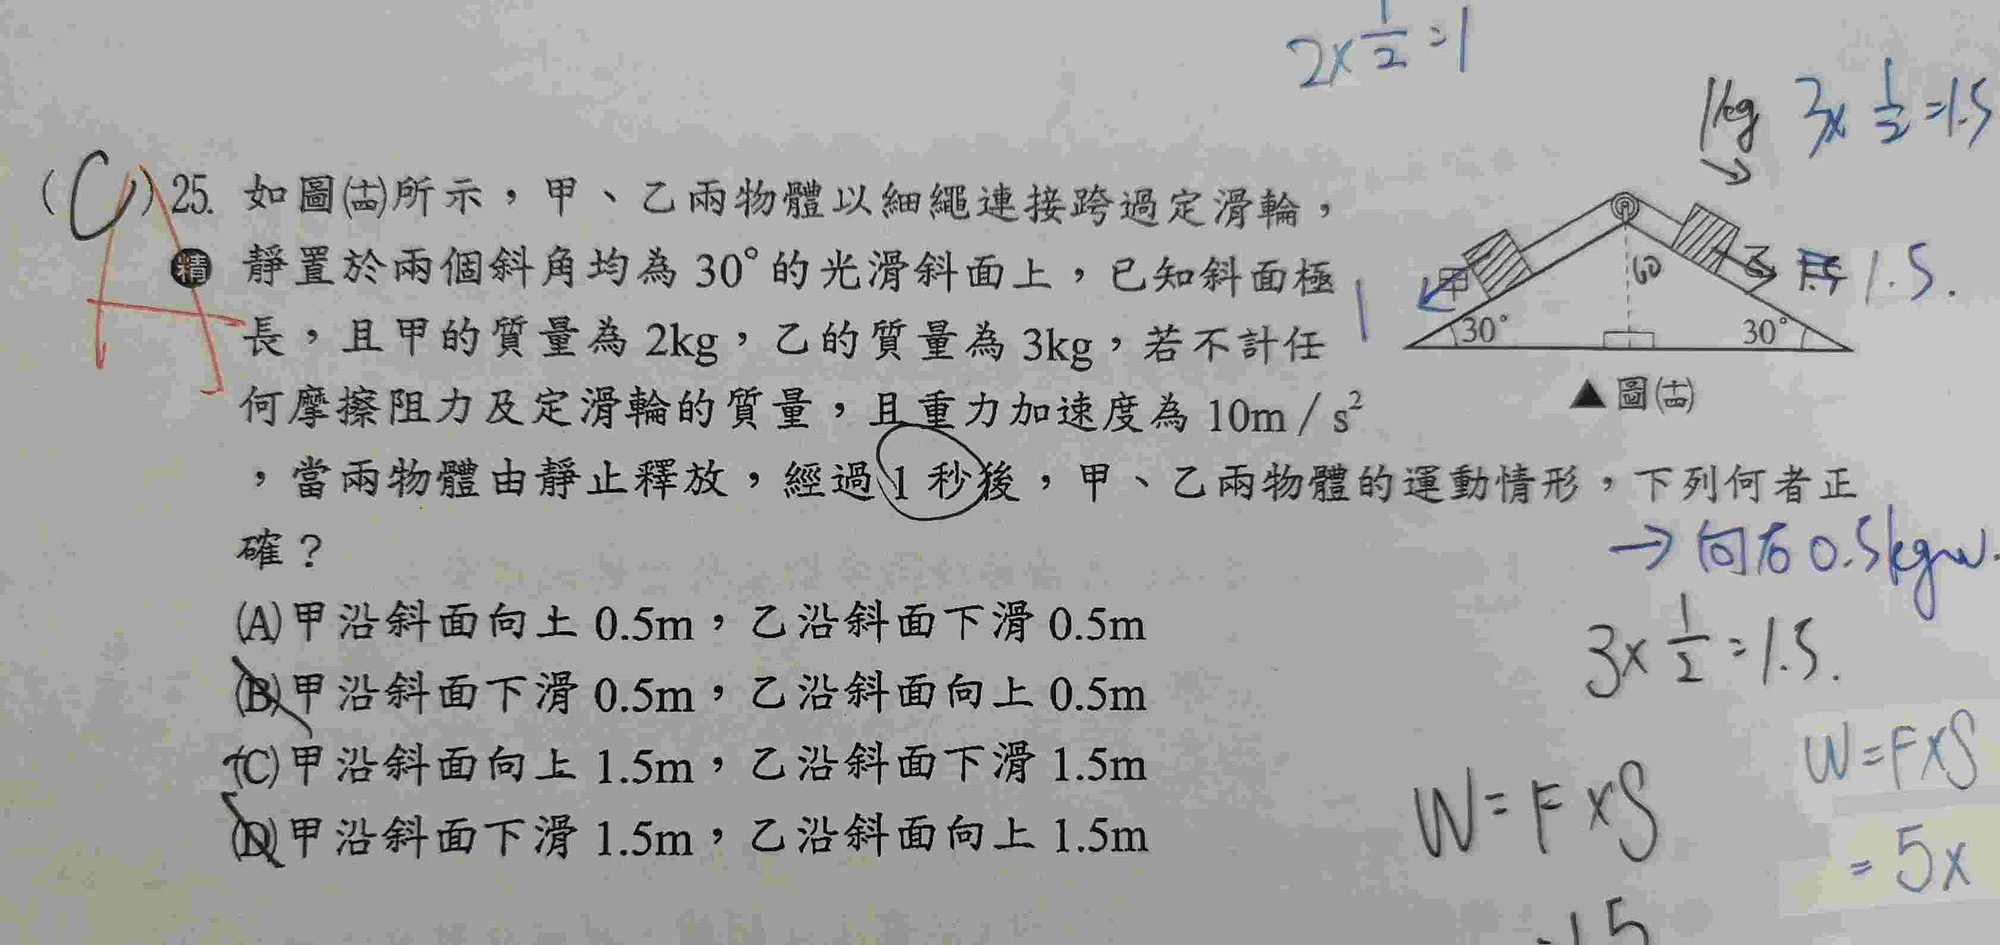 2×1/2=1
1kg 3×1/2=1.5
(C)25. 如圖(十四)所示，甲、乙兩物體以細繩連接跨過定滑輪，
精 靜置於兩個斜角均為 30°的光滑斜面上，已知斜面極
長，且甲的質量為 2kg，乙的質量為 3kg，若不計任
何摩擦阻力及定滑輪的質量，且重力加速度為 10m／s²
，當兩物體由靜止釋放，經過 1 秒後，甲、乙兩物體的運動情形，下列何者正
確？
A
甲
乙
60
1
1.5.
30°
30°
▲圖(十四)
→向右0.5kgw.
(A)甲沿斜面向上 0.5m，乙沿斜面下滑 0.5m
(B)甲沿斜面下滑 0.5m，乙沿斜面向上 0.5m
(C)甲沿斜面向上 1.5m，乙沿斜面下滑 1.5m
(D)甲沿斜面下滑 1.5m，乙沿斜面向上 1.5m
3×1/2=1.5.
W=F×S
W=F×S
=5×